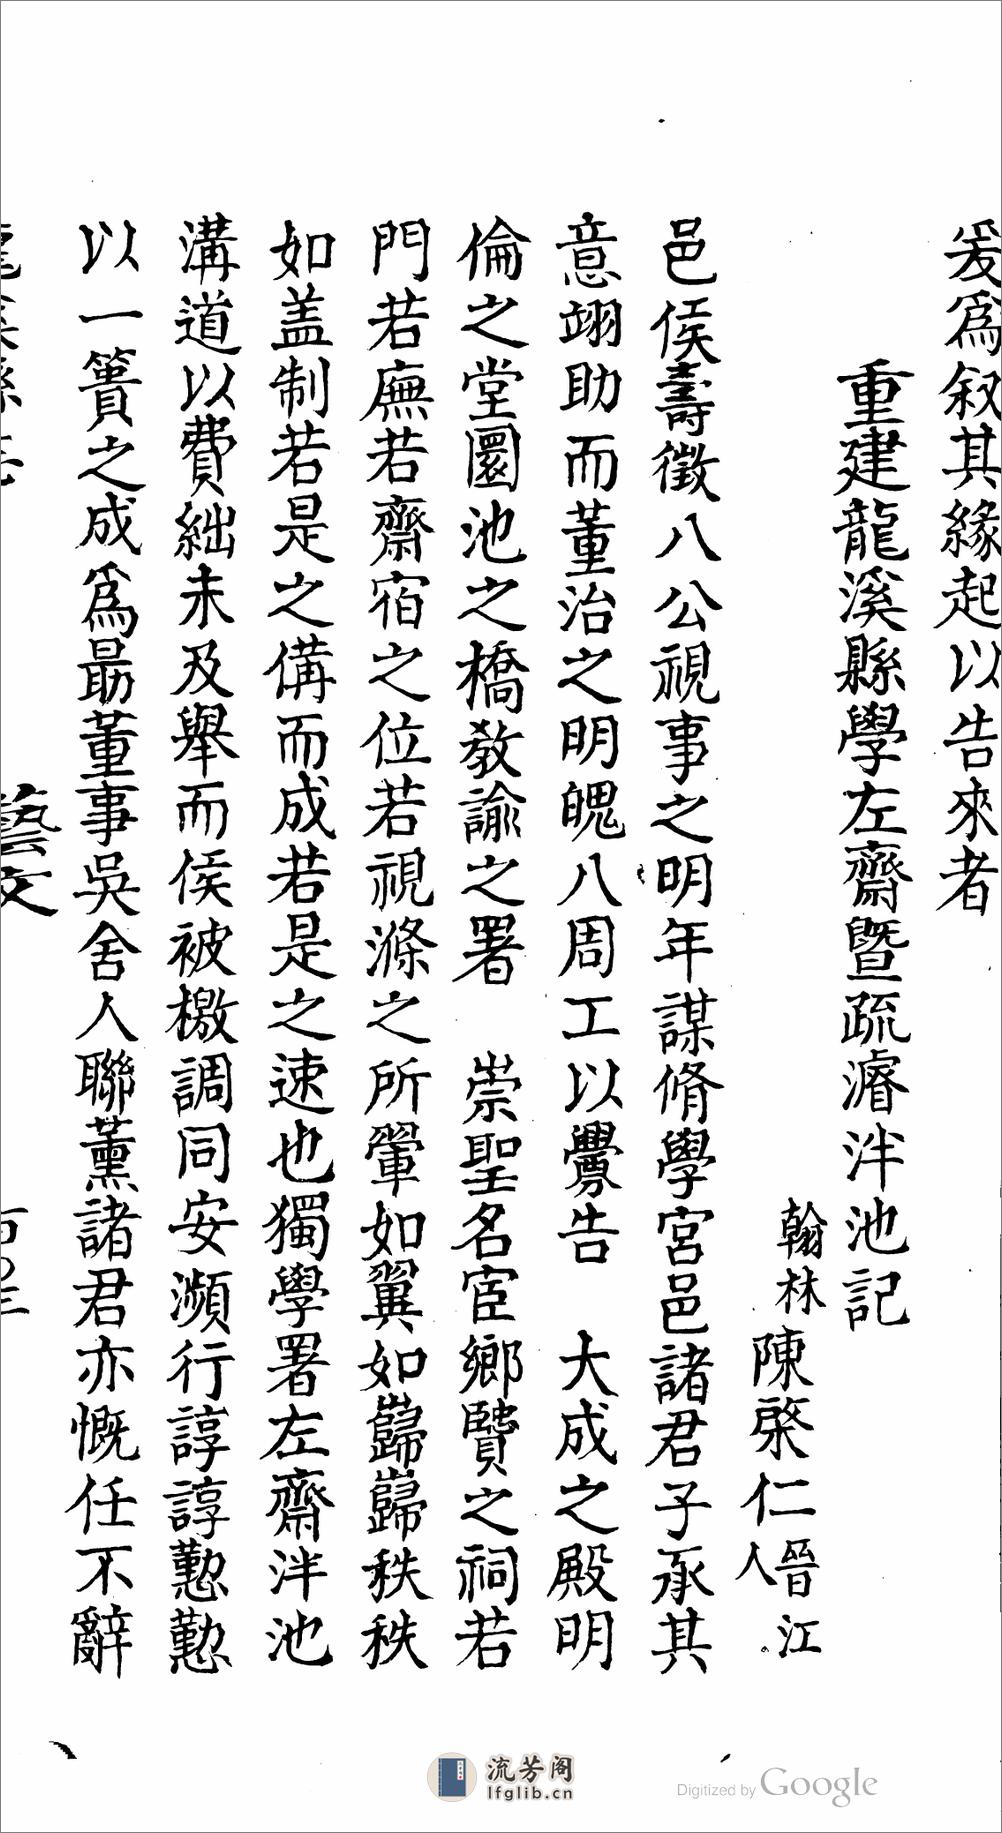 爰爲叙其緣起以告來者
重建龍溪縣學左齋曁疏濬泮池記
翰林陳棨仁晉江人
邑侯壽徵八公視事之明年謀脩學宮邑諸君子承其
意翊助而董治之明魄八周工以釁告 大成之殿明
倫之堂圜池之橋敎諭之署 崇聖名宦鄉賢之祠若
門若廡若齋宿之位若視滌之所翬如翼如巋巋秩秩
如盖制若是之備而成若是之速也獨學署左齋泮池
溝道以費絀未及舉而侯被檄調同安瀕行諄諄懃懃
以一簣之成爲最董事吳舍人聯薰諸君亦慨任不辭
藝文
流芳阁
lfglib.cn
Digitized by Google